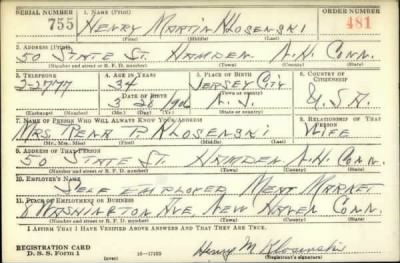 SERIAL NUMBER 1. NAME (Print) ORDER NUMBER
755 HENRY MARTIN KLOSENSKI 481
(First) (Middle) (Last)
2. ADDRESS (Print)
50 STATE ST. HAMDEN N.H. CONN.
(Number and street or R. F. D. number) (Town) (County) (State)
3. TELEPHONE 4. AGE IN YEARS 5. PLACE OF BIRTH 6. COUNTRY OF CITIZENSHIP
2-2777 34 JERSEY CITY
DATE OF BIRTH (Town or county)
3 28 N.J. U.S.A.
(Exchange) (Number) (Mo.) (Day) (Yr.) (State or country)
7. NAME OF PERSON WHO WILL ALWAYS KNOW YOUR ADDRESS 8. RELATIONSHIP OF THAT PERSON
MRS. P. KLOSENSKI WIFE
(Mr., Mrs., Miss) (First) (Middle) (Last)
9. ADDRESS OF THAT PERSON
50 STATE ST. HAMDEN N.H. CONN.
(Number and street or R. F. D. number) (Town) (County) (State)
10. EMPLOYER'S NAME
SELF EMPLOYED MEAT MARKET
11. PLACE OF EMPLOYMENT OR BUSINESS
WASHINGTON AVE NEW HAVEN CONN.
(Number and street or R. F. D. number) (Town) (County) (State)
I AFFIRM THAT I HAVE VERIFIED ABOVE ANSWERS AND THAT THEY ARE TRUE.
REGISTRATION CARD
D. S. S. Form 1 16—17105 Henry M Klosenski
(Registrant's signature)